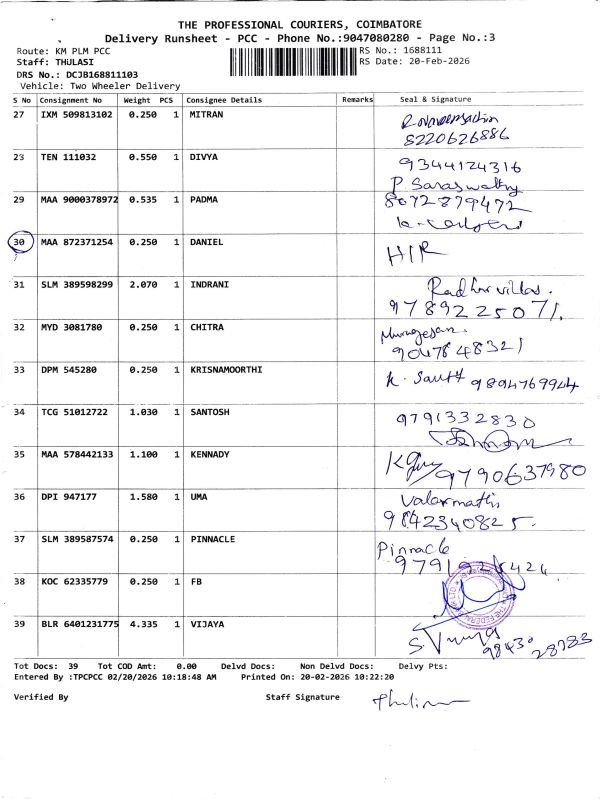 THE PROFESSIONAL COURIERS, COIMBATORE
Delivery Runsheet - PCC - Phone No.:9047080280 - Page No.:3
Route: KM PLM PCC
RS No.: 1688111
Staff: THULASI
RS Date: 20-Feb-2026
DRS No.: DCJB168811103
Vehicle: Two Wheeler Delivery
S No Consignment No Weight PCS Consignee Details Remarks Seal & Signature
27 IXM 509813102 0.250 1 MITRAN
8220626886
23 TEN 111032 0.550 1 DIVYA 9344124316
P Saraswathy
29 MAA 9000378972 0.535 1 PADMA 8072879472
30 MAA 872371254 0.250 1 DANIEL
31 SLM 389598299 2.070 1 INDRANI Radha villas.
9789225071.
32 MYD 3081780 0.250 1 CHITRA Murugesan.
9047848321
33 DPM 545280 0.250 1 KRISNAMOORTHI K. 9894769944
34 TCG 51012722 1.030 1 SANTOSH 9791332830
35 MAA 578442133 1.100 1 KENNADY 9790637980
36 DPI 947177 1.580 1 UMA Valarmathi
9842340825.
37 SLM 389587574 0.250 1 PINNACLE Pinnacle
38 KOC 62335779 0.250 1 FB
THE FEDERAL
39 BLR 6401231775 4.335 1 VIJAYA 98430
28783
Tot Docs: 39 Tot COD Amt: 0.00 Delvd Docs: Non Delvd Docs: Delvy Pts:
Entered By :TPCPCC 02/20/2026 10:18:48 AM Printed On: 20-02-2026 10:22:20
Verified By Staff Signature